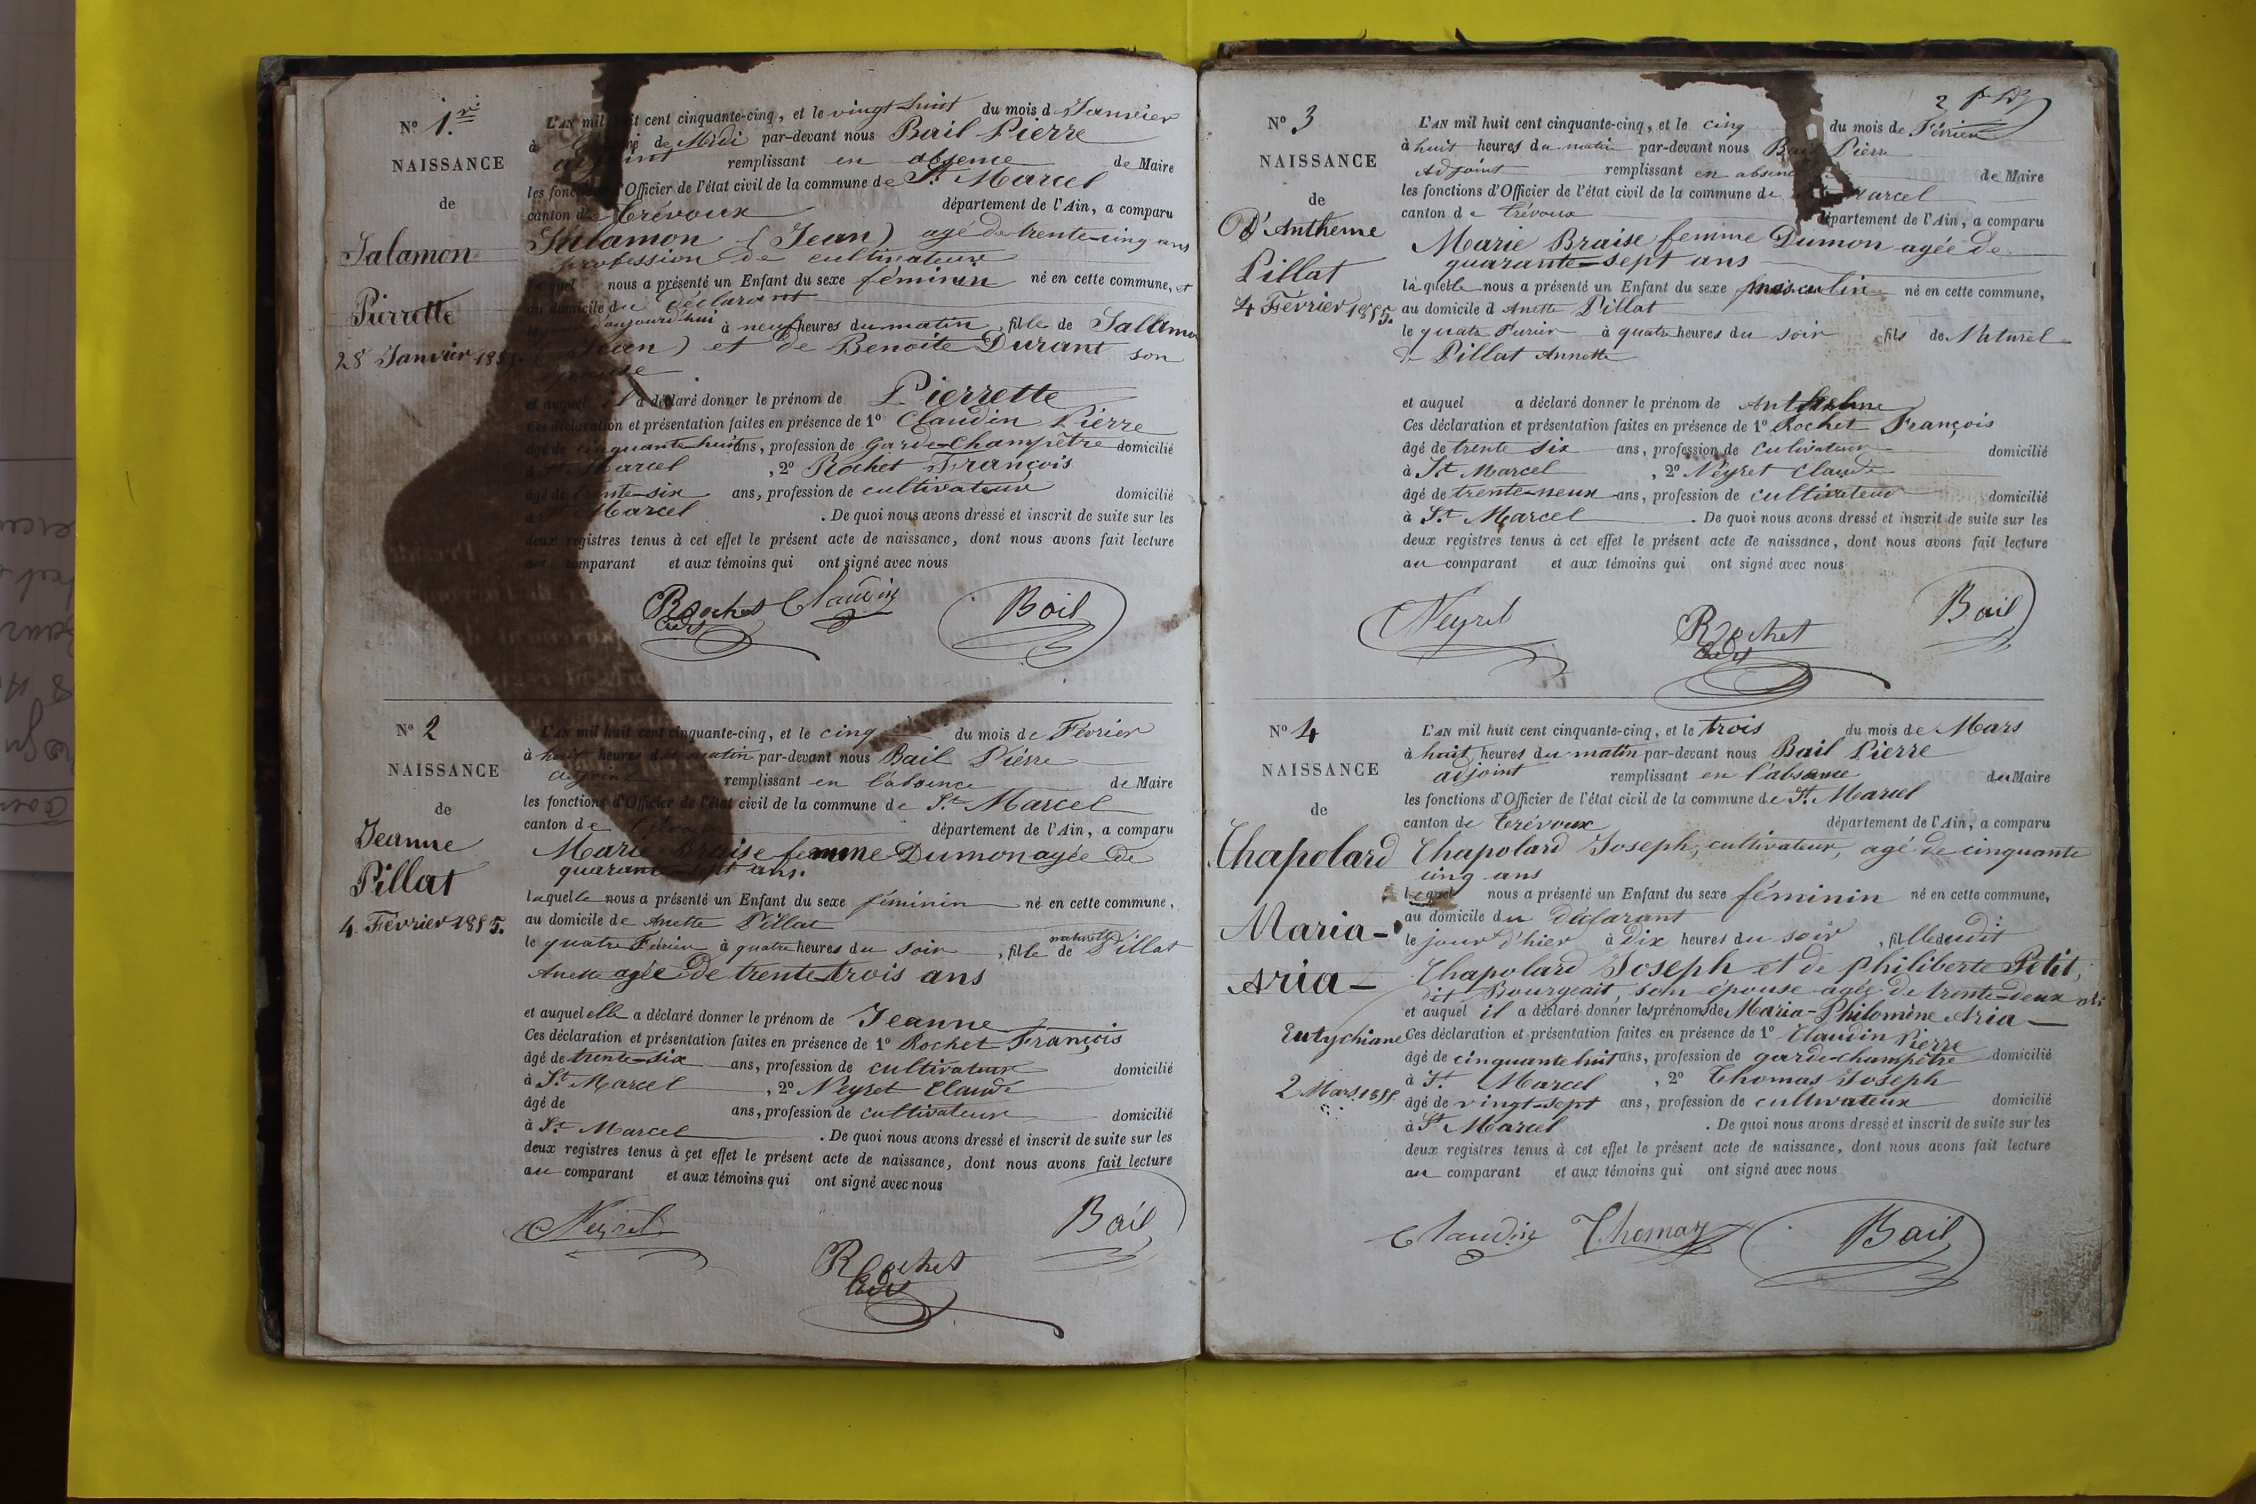 N° 1.er
NAISSANCE
de
Salamon
Pierrette
28 Janvier 1855.
L'AN mil huit cent cinquante-cinq, et le vingt huit du mois d Janvier
à de Midi par-devant nous Bail Pierre
adjoint remplissant en absence de Maire
les fonctions d'Officier de l'état civil de la commune de St. Marcel
canton de Trévoux département de l'Ain, a comparu
Salamon (Jean) agé de trente-cinq ans
profession de cultivateur
lequel nous a présenté un Enfant du sexe féminin né en cette commune, et
au domicile du déclarant
le d'aujourd'hui à neuf heures du matin, fille de Sallamon
(Jean) et de Benoite Durant son
épouse
et auquel il a déclaré donner le prénom de Pierrette
Ces déclaration et présentation faites en présence de 1° Claudin Pierre
âgé de cinquante huit ans, profession de Garde-Champêtre domicilié
à St Marcel, 2° Rochet François
âgé de trente-six ans, profession de cultivateur domicilié
à St Marcel. De quoi nous avons dressé et inscrit de suite sur les
deux registres tenus à cet effet le présent acte de naissance, dont nous avons fait lecture
au comparant et aux témoins qui ont signé avec nous
Rochet Claudin Bail
N° 2
NAISSANCE
de
Jeanne
Pillat
4 Février 1855.
L'AN mil huit cent cinquante-cinq, et le cinq du mois de Février
à huit heures du matin par-devant nous Bail Pierre
adjoint remplissant en l'absence de Maire
les fonctions d'Officier de l'état civil de la commune de St. Marcel
canton de département de l'Ain, a comparu
Marie Braise femme Dumon agée de
quarante-sept ans.
laquelle nous a présenté un Enfant du sexe féminin né en cette commune,
au domicile de Anette Pillat
le quatre Février à quatre heures du soir, fille naturelle de Pillat
Anette agée de trente-trois ans
et auquel elle a déclaré donner le prénom de Jeanne
Ces déclaration et présentation faites en présence de 1° Rochet François
âgé de trente-six ans, profession de cultivateur domicilié
à St. Marcel, 2° Neyret Claude
âgé de ans, profession de cultivateur domicilié
à St. Marcel. De quoi nous avons dressé et inscrit de suite sur les
deux registres tenus à cet effet le présent acte de naissance, dont nous avons fait lecture
au comparant et aux témoins qui ont signé avec nous
Neyret Bail
Rochet
2
N° 3
NAISSANCE
de
D'Antheme
Pillat
4 Février 1855.
L'AN mil huit cent cinquante-cinq, et le cinq du mois de Février
à huit heures du matin par-devant nous Bail Pierre
Adjoint remplissant en absence de Maire
les fonctions d'Officier de l'état civil de la commune de Marcel
canton de Trévoux département de l'Ain, a comparu
Marie Braise femme Dumon agée de
quarante-sept ans
laquelle nous a présenté un Enfant du sexe masculin né en cette commune,
au domicile d Anette Pillat
le quatre à quatre heures du soir fils de Naturel
de Pillat Annette
et auquel a déclaré donner le prénom de
Ces déclaration et présentation faites en présence de 1° Rochet François
âgé de trente six ans, profession de cultivateur domicilié
à St Marcel, 2° Neyret Claude
âgé de trente-neux ans, profession de cultivateur domicilié
à St. Marcel. De quoi nous avons dressé et inscrit de suite sur les
deux registres tenus à cet effet le présent acte de naissance, dont nous avons fait lecture
au comparant et aux témoins qui ont signé avec nous
Neyret Rochet Bail
N° 4
NAISSANCE
de
Chapolard
Maria-
Aria-
Eutychiane
2 Mars 1855
L'AN mil huit cent cinquante-cinq, et le trois du mois de Mars
à huit heures du matin par-devant nous Bail Pierre
adjoint remplissant en l'absence du Maire
les fonctions d'Officier de l'état civil de la commune de St. Marcel
canton de Trévoux département de l'Ain, a comparu
Chapolard Joseph, cultivateur, agé de cinquante
cinq ans
lequel nous a présenté un Enfant du sexe féminin né en cette commune,
au domicile du déclarant
le jour d'hier à dix heures du soir, fille dudit
Chapolard Joseph et de Philiberte Petit,
dit Bourgeait, son épouse agée de trente-deux ans
et auquel il a déclaré donner les prénoms de Maria-Philomène Aria-
Ces déclaration et présentation faites en présence de 1° Claudin Pierre
âgé de cinquante huit ans, profession de garde-champêtre domicilié
à St. Marcel, 2° Thomas Joseph
âgé de vingt-sept ans, profession de cultivateur domicilié
à St Marcel. De quoi nous avons dressé et inscrit de suite sur les
deux registres tenus à cet effet le présent acte de naissance, dont nous avons fait lecture
au comparant et aux témoins qui ont signé avec nous
Claudin Thomas Bail